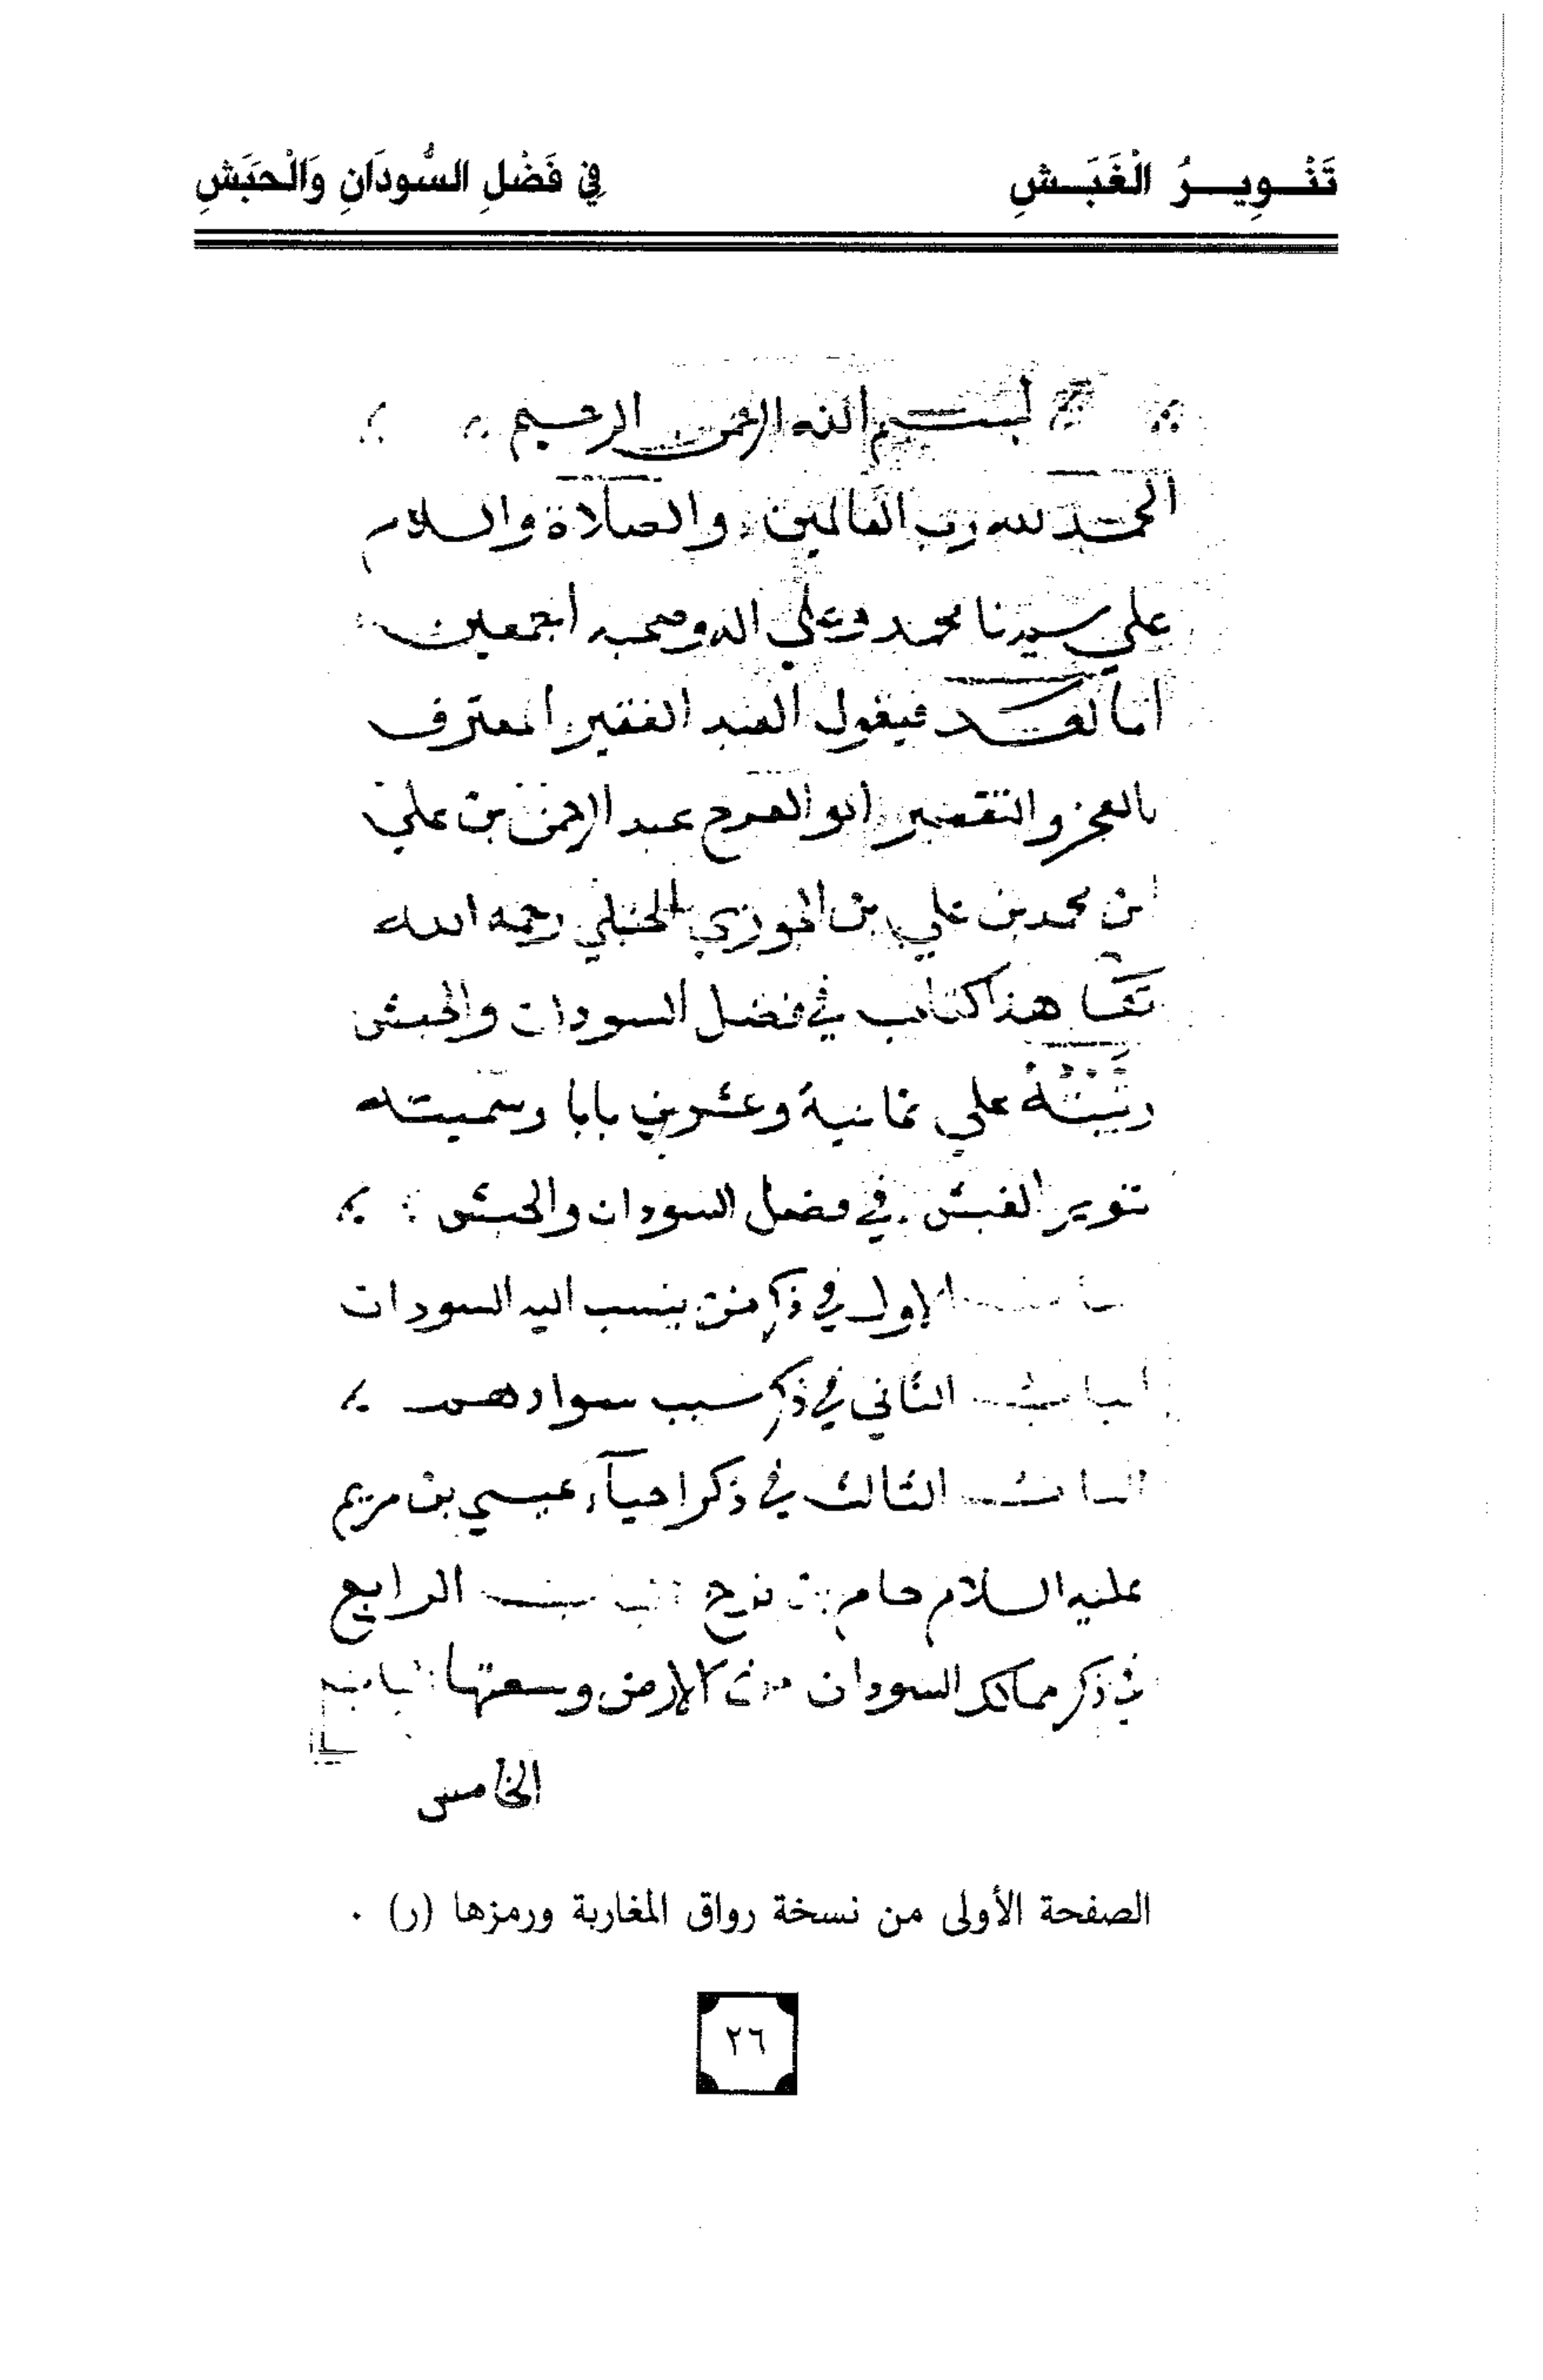 تَنْوِيرُ الْغَبَشِ في فَضْلِ السُّودَانِ وَالْحَبَشِ
بسم الله الرحمن الرحيم
الحمد لله رب العالمين والصلاة والسلام
علي سيدنا محمد وعلي اله وصحبه اجمعين
اما بعد فيقول العبد الفقير المعترف
بالعجز والتقصير ابو الفرج عبد الرحمن بن علي
ابن محمد بن علي بن الجوزي الحنبلي رحمه الله
تعا هذا كتاب في فضل السودان والحبش
رتبته علي ثمانية وعشرين بابا وسميته
تنوير الغبش في فضل السودان والحبش
الاول في ذكر من ينسب اليه السودان
الباب الثاني في ذكر سبب سوادهم
الباب الثالث في ذكر احيآء عيسي بن مريم
عليه السلام حام بن نوح الباب الرابع
في ذكر ممالك السودان من الارض وسعتها الباب
الخامس
الصفحة الأولى من نسخة رواق المغاربة ورمزها (ر) .
٢٦